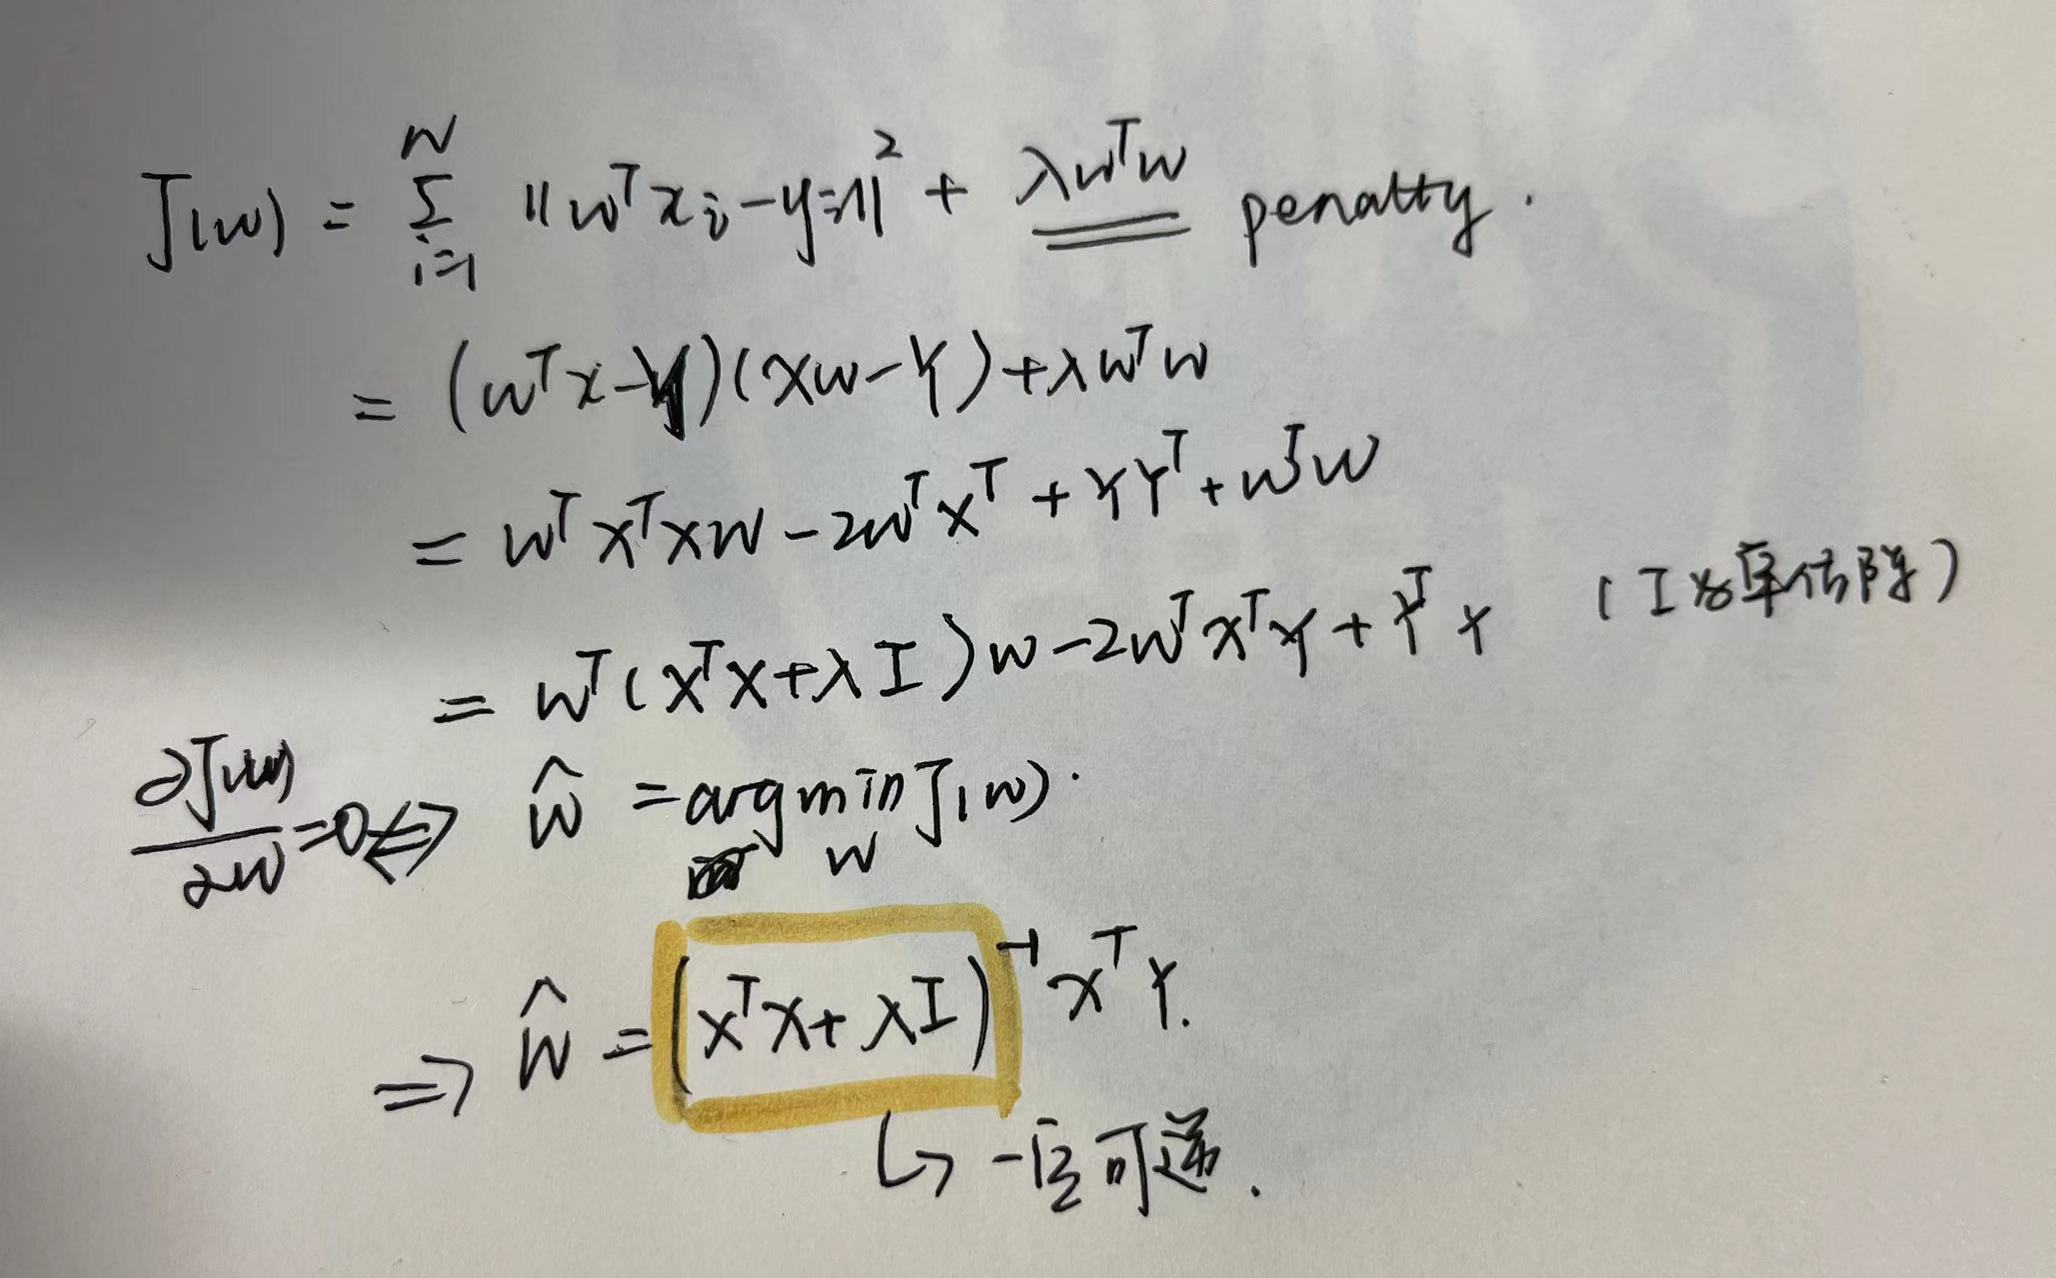 J(w) = Σ_{i=1}^{N} ||w^T x_i - y_i||^2 + λw^T w penalty.
= (w^T x - Y)(Xw - Y) + λw^T w
= w^T X^T X w - 2w^T X^T + YY^T + w^T w
= w^T (X^T X + λI) w - 2w^T X^T Y + Y^T Y (I为单位阵)
∂J(w)/∂w = 0 <=> ŵ = argmin_w J(w).
=> ŵ = (X^T X + λI)^{-1} X^T Y.
↳ 一定可逆.